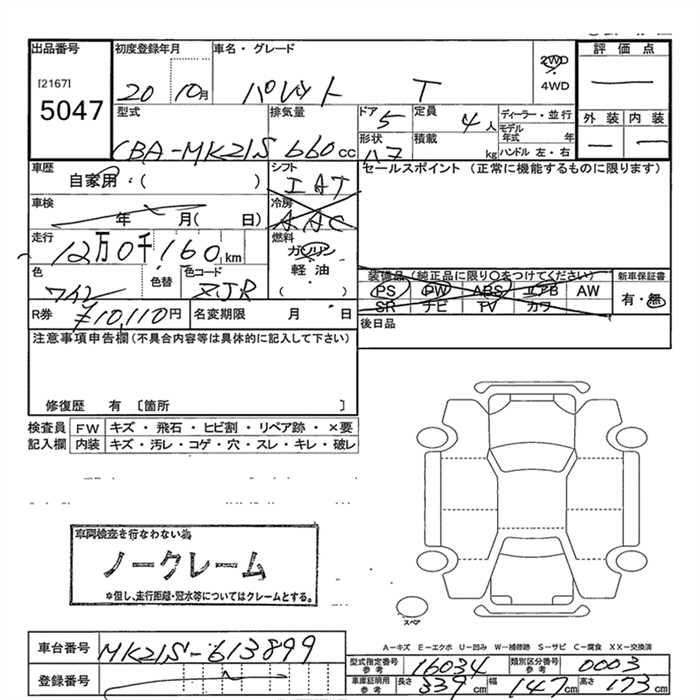 出品番号 初度登録年月 車名・グレード 評価点
[2167] 2WD
5047 20 10月 パレット T 4WD
外装 内装
型式 排気量 ドア 定員 ディーラー・並行
CBA-MK21S 660cc 5 4人 モデル年式 年
形状 積載 kg ハンドル 左・右
ハ7
車歴 自家用・( ) シフト IAT セールスポイント (正常に機能するものに限ります)
車検 年 月( 日) 冷房 AAC
走行 12万0千160km 燃料 ガソリン
軽油
( )
色 ワイン 色替 色コード ZJR
装備品(純正品に限り○をつけてください) 新車保証書
PS PW ABS エアB AW 有・無
SR ナビ TV カワ
R券 ¥10,110円 名変期限 月 日 後日品
注意事項申告欄(不具合内容等は具体的に記入して下さい)
修復歴 有 〔箇所 〕
検査員 FW キズ・飛石・ヒビ割・リペア跡・×要
記入欄 内装 キズ・汚レ・コゲ・穴・スレ・キレ・破レ
車両検査を行なわない為
ノークレーム
*但し、走行距離・冠水等についてはクレームとする。
スペア
A-キズ E-エクボ U-凹み W-補修跡 S-サビ C-腐食 XX-交換済
車台番号 MK21S-613899
型式指定番号 参考 16034 類別区分番号 参考 0003
登録番号
車庫証明用 参考 長さ 339cm 幅 147cm 高さ 173cm